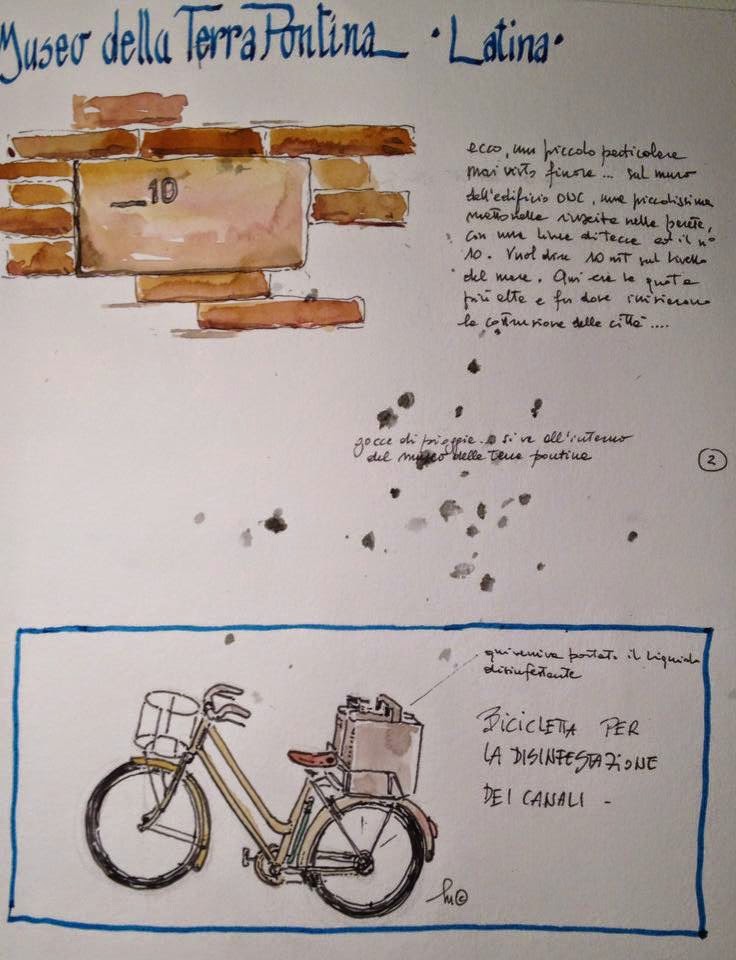 Museo della Terra Pontina · Latina ·
_10
ecco, un piccolo particolare
mai visto finora... sul muro
dell'edificio ONC, una piccolissima
mattonella inserita nella parete,
con una linea di terra ed il n°
10. Vuol dire 10 mt sul livello
del mare. Qui era la quota
più alta e fu dove iniziarono
la costruzione della città....
gocce di pioggia... si va all'interno
del museo della terra pontina
2
qui veniva portato il liquido
disinfestante
BICICLETTA PER
LA DISINFESTAZIONE
DEI CANALI -